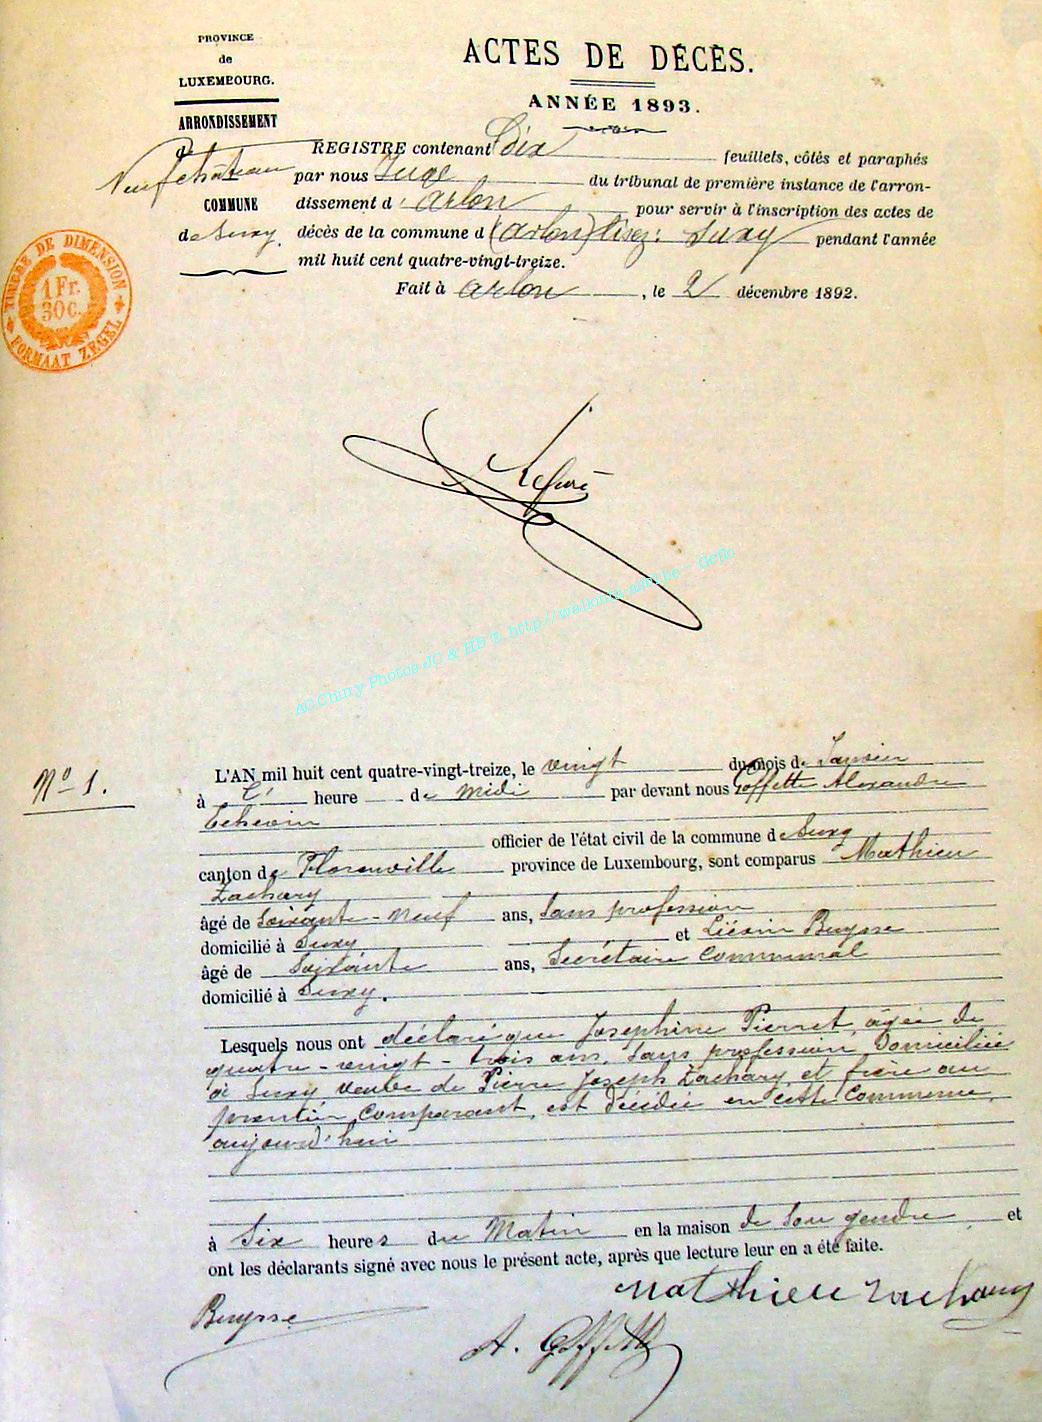 PROVINCE
de
LUXEMBOURG.
ARRONDISSEMENT
de
Neufchâteau
COMMUNE
de Suxy.
TIMBRE DE DIMENSION
1 Fr.
30 c.
FORMAAT ZEGEL
ACTES DE DÉCÈS.
ANNÉE 1893.
REGISTRE contenant Dix feuillets, côtés et paraphés
par nous Juge du tribunal de première instance de l'arron-
dissement d'Arlon pour servir à l'inscription des actes de
décès de la commune d (Arlon) lisez: Suxy pendant l'année
mil huit cent quatre-vingt-treize.
Fait à Arlon, le 2 décembre 1892.
AC Chiny Photos JC & HB T. http://wallonia.asbl.be - Geffe
N° 1.
L'AN mil huit cent quatre-vingt-treize, le vingt du mois de Janvier
à l' heure de Midi par devant nous Goffette Alexandre
Echevin
officier de l'état civil de la commune de Suxy
canton de Florenville province de Luxembourg, sont comparus Mathieu
Zachary
âgé de Soixante-Neuf ans, Sans profession
domicilié à Suxy et Liévin Buysse
âgé de Soixante ans, Secrétaire Communal
domicilié à Suxy.
Lesquels nous ont déclaré que Joséphine Pierret, âgée de
quatre-vingt-trois ans, Sans profession Domiciliée
à Suxy, veuve de Pierre Joseph Zachary, et frère au
premier Comparant, est Décédée en cette Commune,
aujourd'hui
à Six heures du Matin en la maison de Son gendre, et
ont les déclarants signé avec nous le présent acte, après que lecture leur en a été faite.
Mathieu Zachary
Buysse
A. Goffette